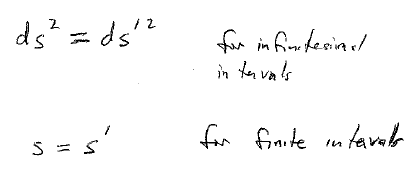 ds² = ds'² for infinitesimal
intervals
s = s' for finite intervals